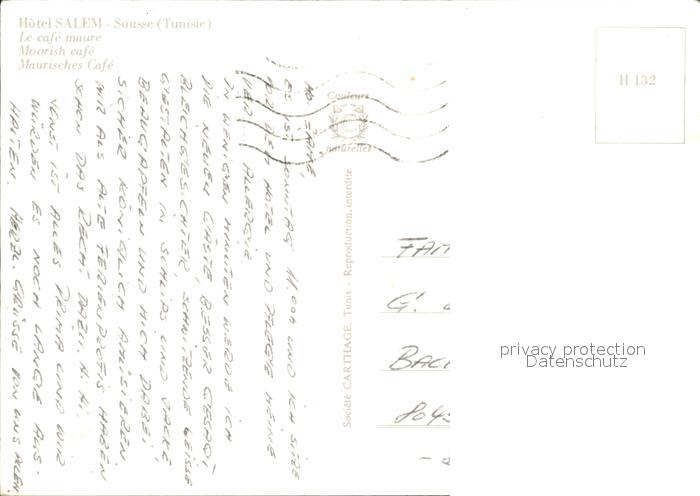 Hôtel SALEM - Sousse (Tunisie)
Le café maure
Moorish café
Maurisches Café
H 132
Couleurs
naturelles
Société CARTHAGE, Tunis - Reproduction interdite
ES IST SONNTAG 11 00h UND ICH SITZE
VOR DEM HOTEL UND PFLEGE MEINE
ALLERGIE.
IN WENIGEN MINUTEN WERDE ICH
DIE NEUEN GÄSTE, BESSER GESAGT
BLEICHGESICHTER, SCHWITZENDE WEISSE
GESTALTEN IN SCHLIPS UND JACKE
BEAUGAPFELN UND MICH DABEI
SICHER KÖNIGLICH AMÜSIEREN.
WIR ALS ALTE FERIENPROFIS HABEN
SCHON DAS RECHT DAZU. HI HI.
SONST IST ALLES PRIMA UND WIR
WÜRDEN ES NOCH LANGE AUS-
HALTEN. HERZL. GRÜSSE VON UNS ALLEN.
FAM
G.
BACH
8045
privacy protection
Datenschutz